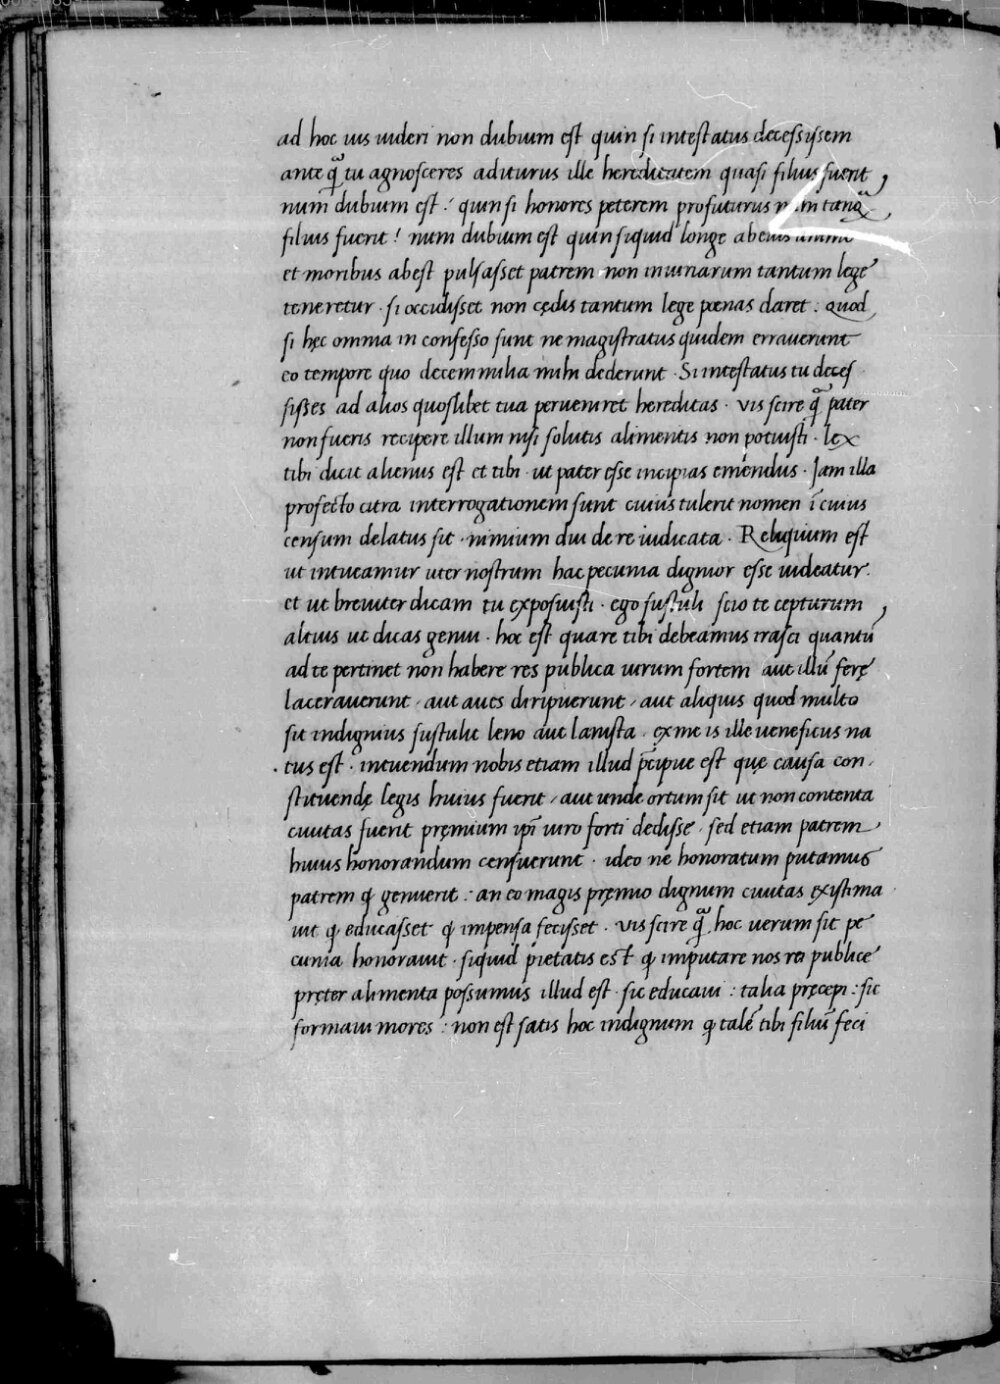 ad hoc ius uideri non dubium est quin si intestatus decessissem
ante q̃ tu agnosceres aditurus ille hereditatem quasi filius fuerit
num dubium est? quin si honores peterem profuturus tanq̃
filius fuerit? num dubium est quin siquid longe ab eius animo
et moribus abest pulsasset patrem non iniuriarum tantum lege
teneretur · si occidisset non cędis tantum lege pœnas daret : Quod
si hęc omnia in confesso sunt ne magistratus quidem errauerunt
eo tempore quo decem milia mihi dederunt · Si intestatus tu deces
sisses ad alios quoslibet tua perueniret hereditas · vis scire q̃ pater
non fueris recipere illum nisi solutis alimentis non potuisti · lex
tibi dicit alienus est et tibi · ut pater esse incipias emẽndus · Jam illa
profecto citra interrogationem sunt cuius tulerit nomen ĩ cuius
censum delatus sit · nimium diu de re iudicata · Reliquium est
ut intueamur uter nostrum hac pecunia dignior esse uideatur.
et ut breuiter dicam tu exposuisti · ego sustuli scio te cepturum
altius ut dicas genui · hoc est quare tibi debeamus irasci quantũ
ad te pertinet non habere res publica uirum fortem aut illũ ferę
lacerauerunt / aut aues diripuerunt / aut aliquis quod multo
sit indignius sustulit leno aut lanista · ex me is ille ueneficus na
tus est · intuendum nobis etiam illud p̃cipue est quę causa con
stituendę legis huius fuerit / aut unde ortum sit ut non contenta
ciuitas fuerit pręmium ipĩ uiro forti dedisse / sed etiam patrem
huius honorandum censuerunt · ideo ne honoratum putamus
patrem ꝙ genuerit : an eo magis pręmio dignum ciuitas existima
uit ꝙ educasset ꝙ impensa fecisset · vis scire q̃ hoc uerum sit pe
cunia honorauit · siquid pietatis est ꝙ imputare nos rei publice
pręter alimenta possumus illud est · sic educaui : talia pręcepi : sic
formaui mores : non est satis hoc indignum ꝙ talẽ tibi filiũ feci